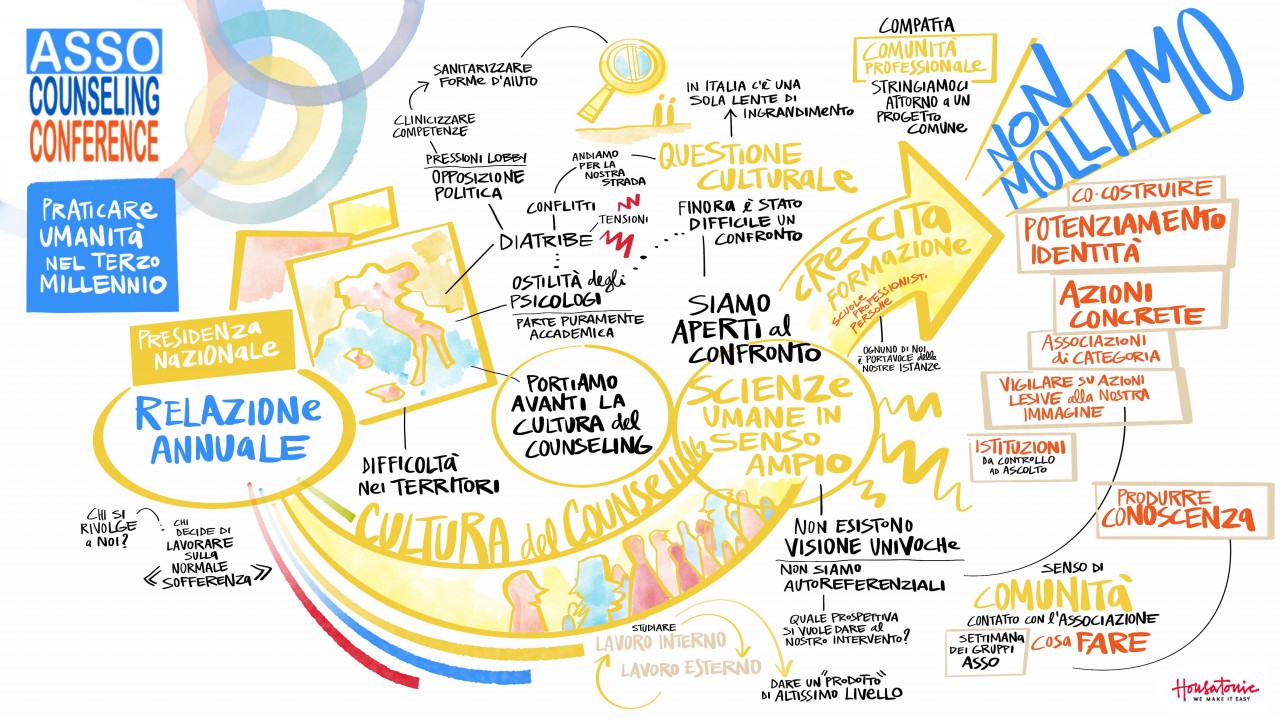 ASSO
COUNSELING
CONFERENCE
PRATICARE
UMANITÀ
NEL TERZO
MILLENNIO
PRESIDENZA
NAZIONALE
RELAZIONE
ANNUALE
CHI SI
RIVOLGE
a NOI?
CHI
DECIDE DI
LAVORARE
SULLA
NORMALE
《SOFFERENZA》
DIFFICOLTÀ
NEI TERRITORI
SANITARIZZARE
FORME D'AIUTO
CLINICIZZARE
COMPETENZE
PRESSIONI LOBBY
OPPOSIZIONE
POLITICA
ANDIAMO
PER LA
NOSTRA
STRADA
CONFLITTI
TENSIONI
DIATRIBE
OSTILITÀ degli
PSICOLOGI
PARTE PURAMENTE
ACCADEMICA
PORTIAMO
AVANTI LA
CULTURA del
COUNSELING
IN ITALIA C'È UNA
SOLA LENTE DI
INGRANDIMENTO
QUESTIONE
CULTURALE
FINORA È STATO
DIFFICILE UN
CONFRONTO
SIAMO
APERTI al
CONFRONTO
SCIENZE
UMANE IN
SENSO
AMPIO
CULTURA del COUNSELING
NON ESISTONO
VISIONE UNIVOCHE
NON SIAMO
AUTOREFERENZIALI
QUALE PROSPETTIVA
SI VUOLE DARE al
NOSTRO INTERVENTO?
STUDIARE
LAVORO INTERNO
LAVORO ESTERNO
DARE UN "PRODOTTO"
DI ALTISSIMO LIVELLO
COMPATTA
COMUNITÀ
PROFESSIONALE
STRINGIAMOCI
ATTORNO a UN
PROGETTO
COMUNE
CRESCITA
FORMAZIONE
SCUOLE
PROFESSIONISTI
PERSONE
OGNUNO DI NOI
È PORTAVOCE delle
NOSTRE ISTANZE
NON
MOLLIAMO
CO-COSTRUIRE
POTENZIAMENTO
IDENTITÀ
AZIONI
CONCRETE
ASSOCIAZIONI
di CATEGORIA
VIGILARE SU AZIONI
LESIVE alla NOSTRA
IMMAGINE
ISTITUZIONI
DA CONTROLLO
AD ASCOLTO
PRODURRE
CONOSCENZA
SENSO DI
COMUNITÀ
CONTATTO CON l'ASSOCIAZIONE
SETTIMANA
DEI GRUPPI
ASSO
COSA FARE
Housatonic
WE MAKE IT EASY